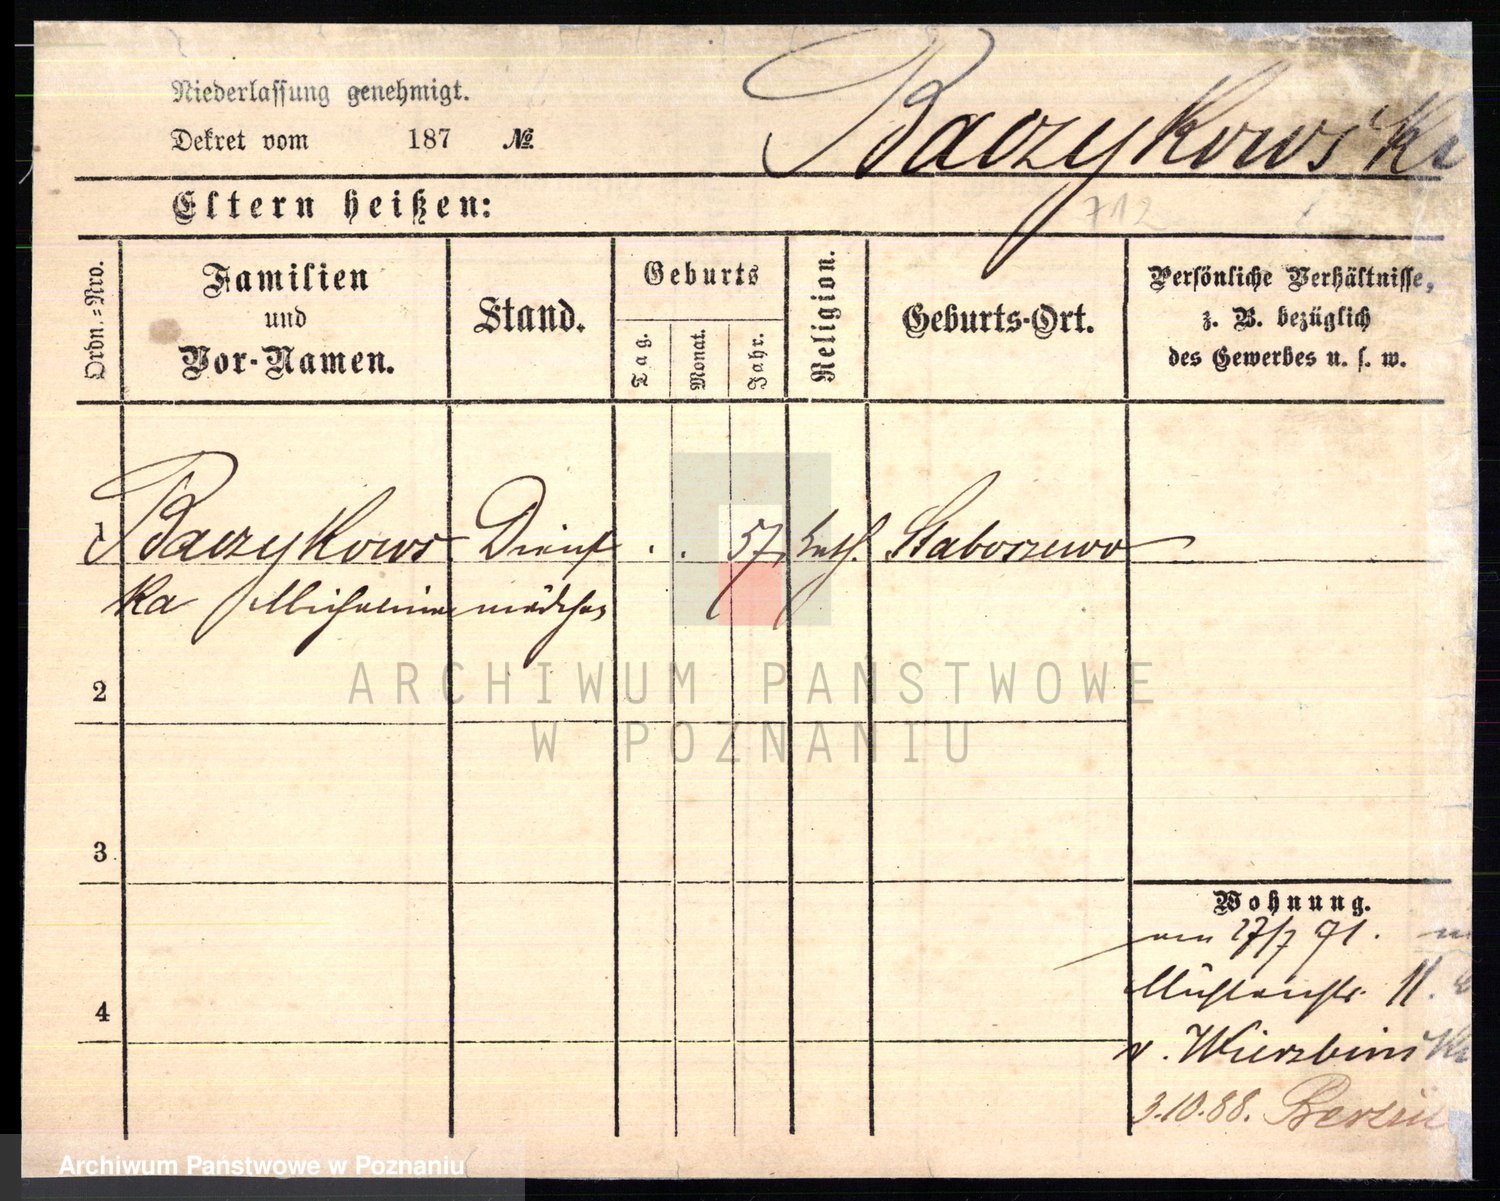 Niederlassung genehmigt.
Dekret vom 187 №
Baczykowski
712
Eltern heißen:
Ordn.-Nro.
Familien
und
Vor-Namen.
Stand.
Geburts
Tag.
Monat.
Jahr.
Religion.
Geburts-Ort.
Persönliche Verhältnisse,
z. B. bezüglich
des Gewerbes u. s. w.
1 Baczykows Dienst . . 57. kath. Staboszewo
ka Michalina mädchen
2
ARCHIWUM PAŃSTWOWE
W POZNANIU
3
Wohnung.
27/7 91.
Mühlenstr. 11.
4
v. Wierzbinski
3.10.88. Berlin
Archiwum Państwowe w Poznaniu